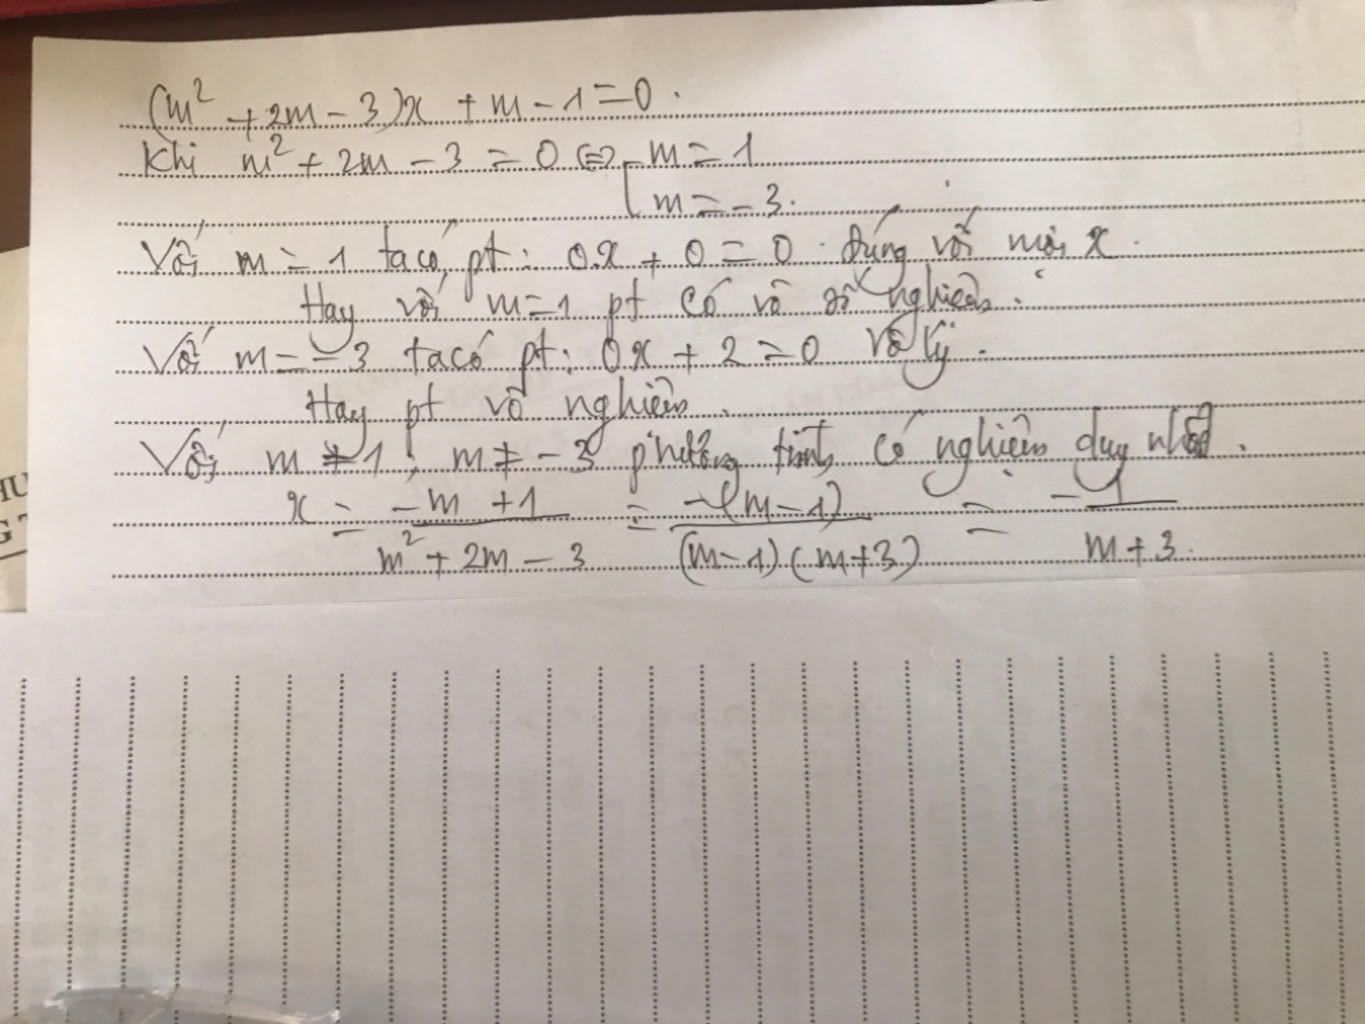 (m² + 2m - 3)x + m - 1 = 0.
Khi m² + 2m - 3 = 0 ⇔ [ m = 1
m = -3.
Với m = 1 ta có pt: 0.x + 0 = 0. đúng với mọi x.
Hay với m = 1 pt có vô số nghiệm.
Với m = -3 ta có pt: 0x + 2 = 0 vô lý.
Hay pt vô nghiệm.
Với m ≠ 1; m ≠ -3 phương trình có nghiệm duy nhất.
x = (-m + 1)/(m² + 2m - 3) = -(m - 1)/((m - 1)(m + 3)) = -1/(m + 3).
HU
G